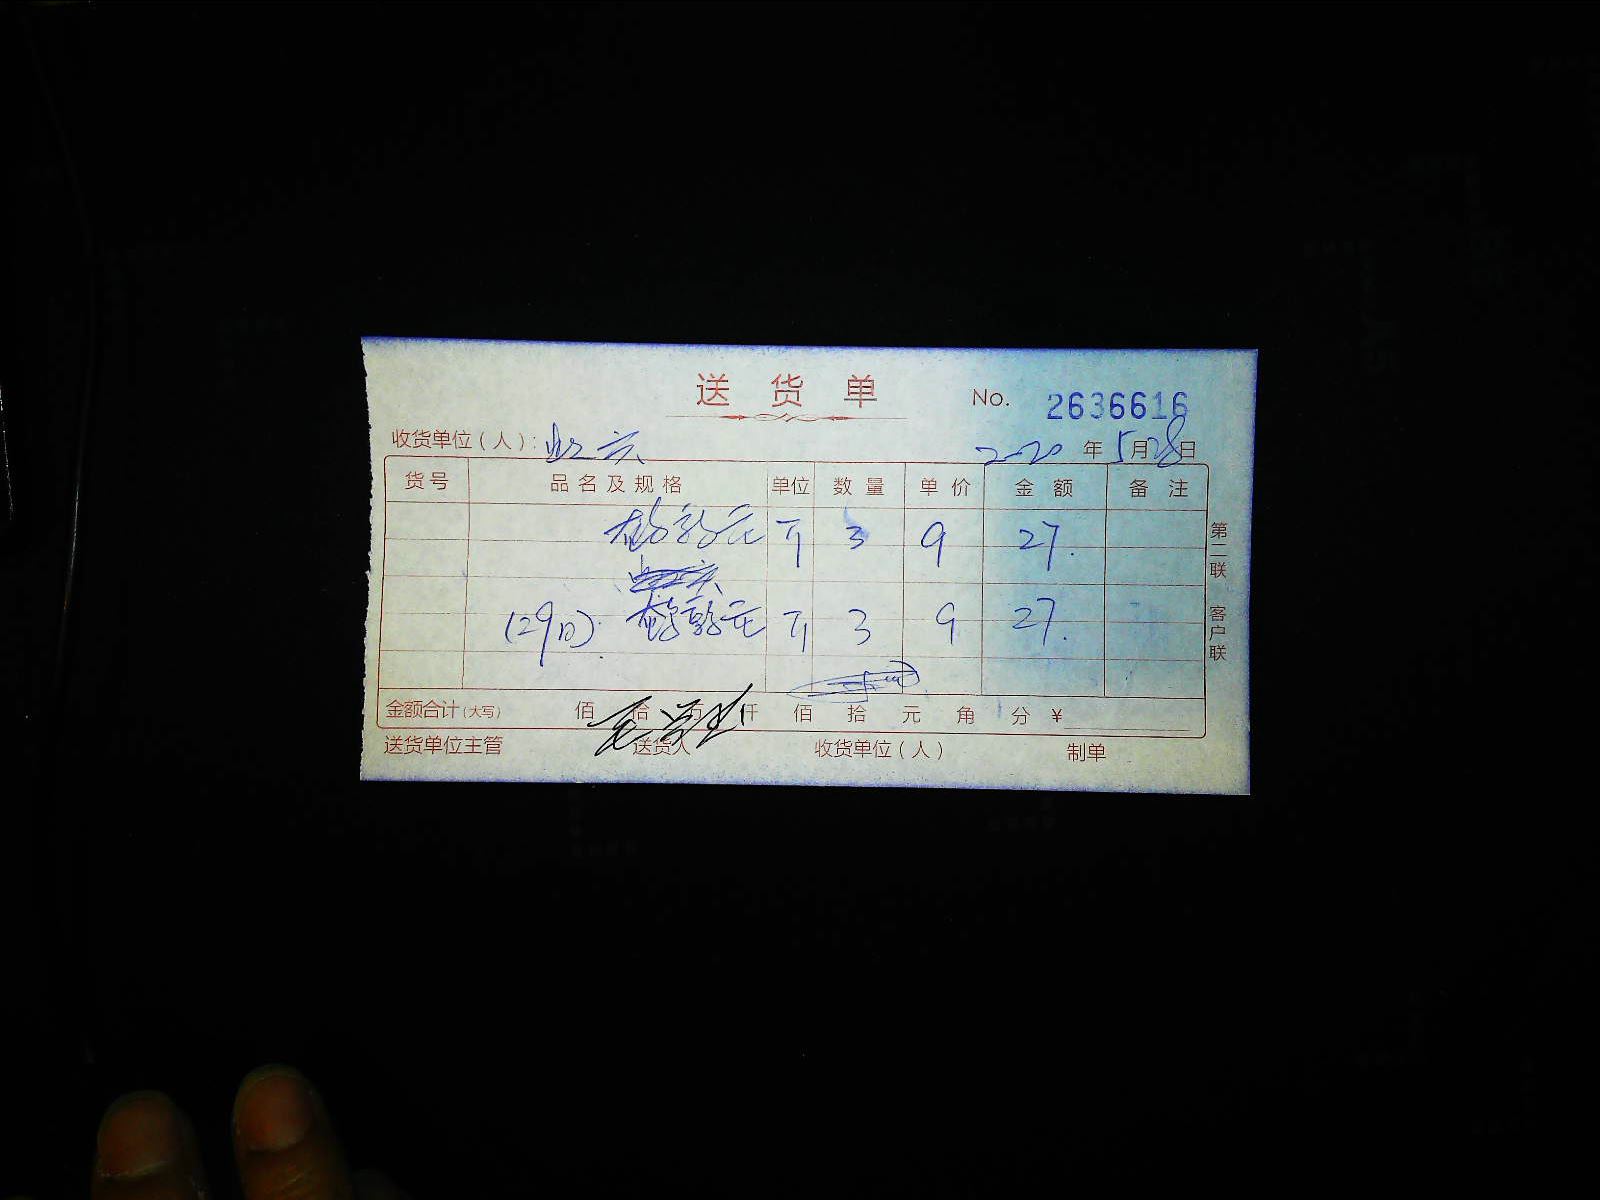 送货单
No. 2636616
收货单位（人）：
2020 年 5月28日
货号 品名及规格 单位 数量 单价 金额 备注
3 9 27.
(29日). 3 9 27.
金额合计(大写) 佰 拾 万 仟 佰 拾 元 角 分 ¥
送货单位主管 送货人 收货单位（人） 制单
第二联 客户联